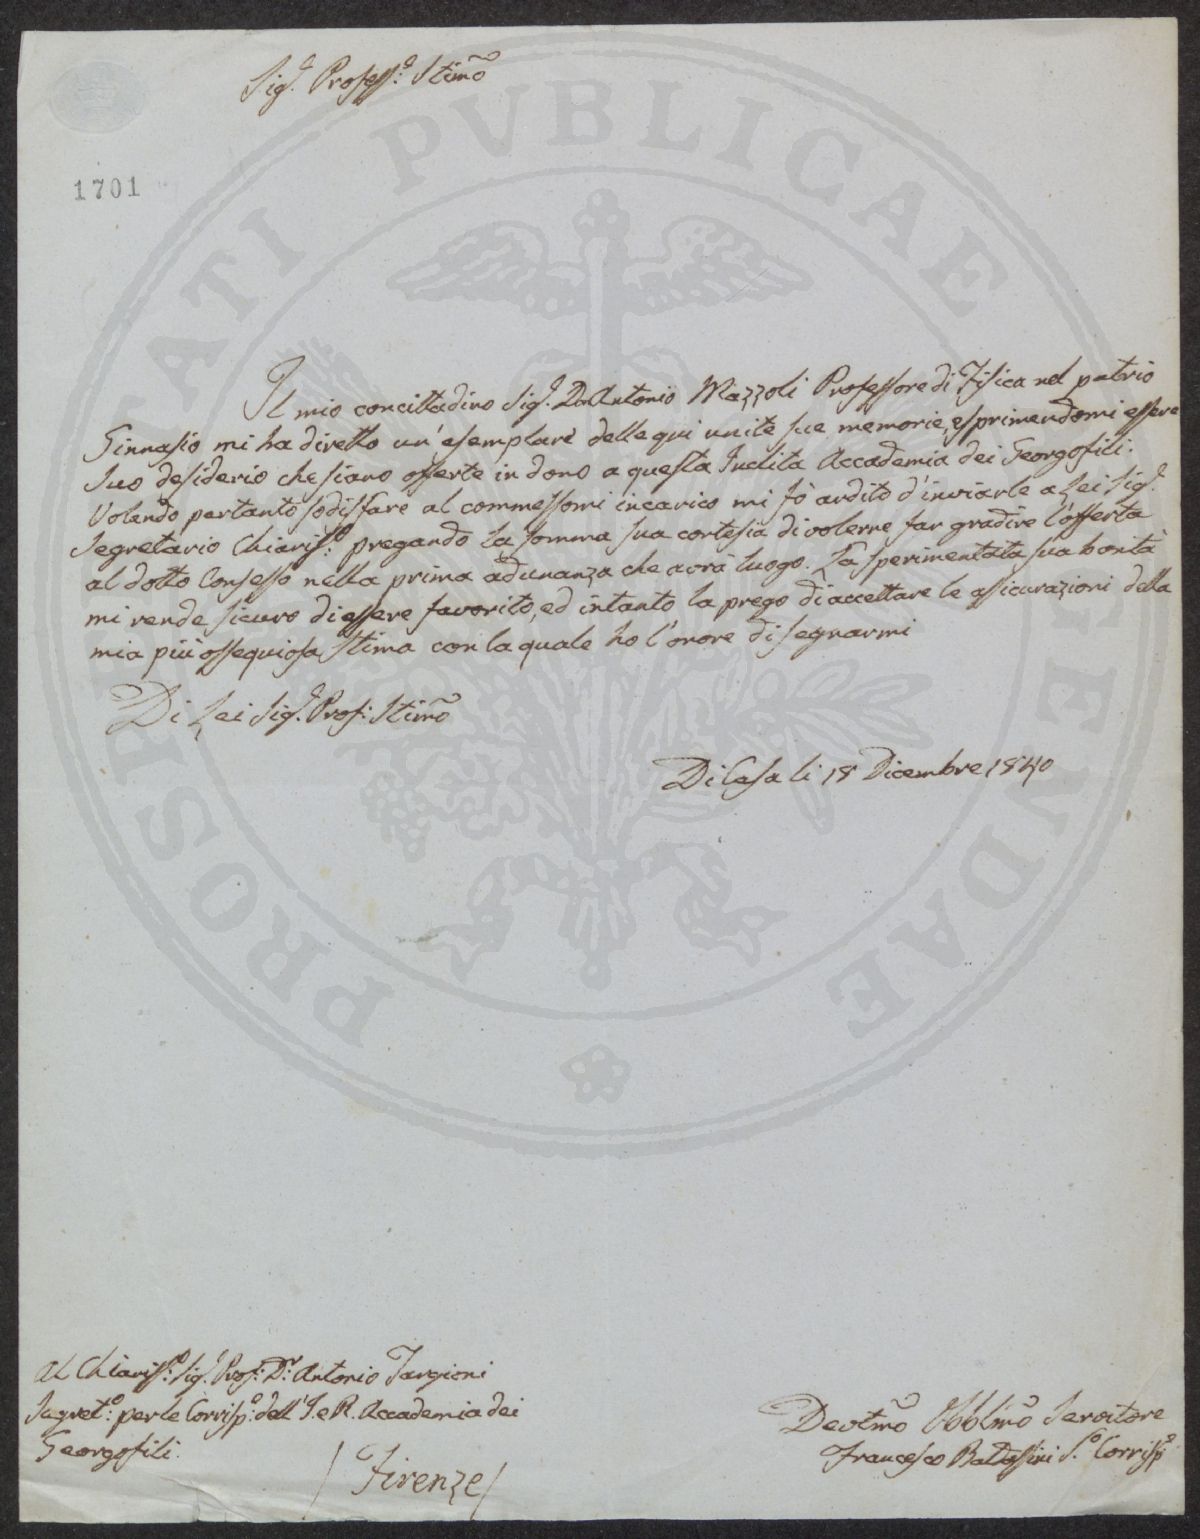 Sig.r Profess.e Stim̃o
1701
PROSPERITATI PVBLICAE AVGENDAE
Il mio concittadino Sig.r D. Antonio Mazzoli Professore di Fisica nel patrio
Ginnasio mi ha diretto un'esemplare delle qui unite sue memorie, esprimendomi essere
suo desiderio che siano offerte in dono a questa Inclita Accademia dei Georgofili.
Volendo pertanto sodisfare al commessomi incarico mi fò ardito d'inviarle a Lei Sig.r
Segretario Chiariss.o pregando la somma sua cortesia di volerne far gradire l'offerta
al dotto Consesso nella prima adunanza che avrà luogo. La sperimentata sua bontà
mi rende sicuro di essere favorito, ed intanto la prego di accettare le assicurazioni della
mia più ossequiosa stima con la quale ho l'onore di segnarmi
Di Lei Sig.r Prof: Stim̃o
Di Casa li 18 Dicembre 1840
Al Chiariss.o Sig.r Prof: D.r Antonio Targioni
Segret.o per le Corrisp.e dell'I. e R. Accademia dei
Georgofili.
/ Firenze /
Devotm̃o Obblim̃o Servitore
Francesco S.o Corrisp.e